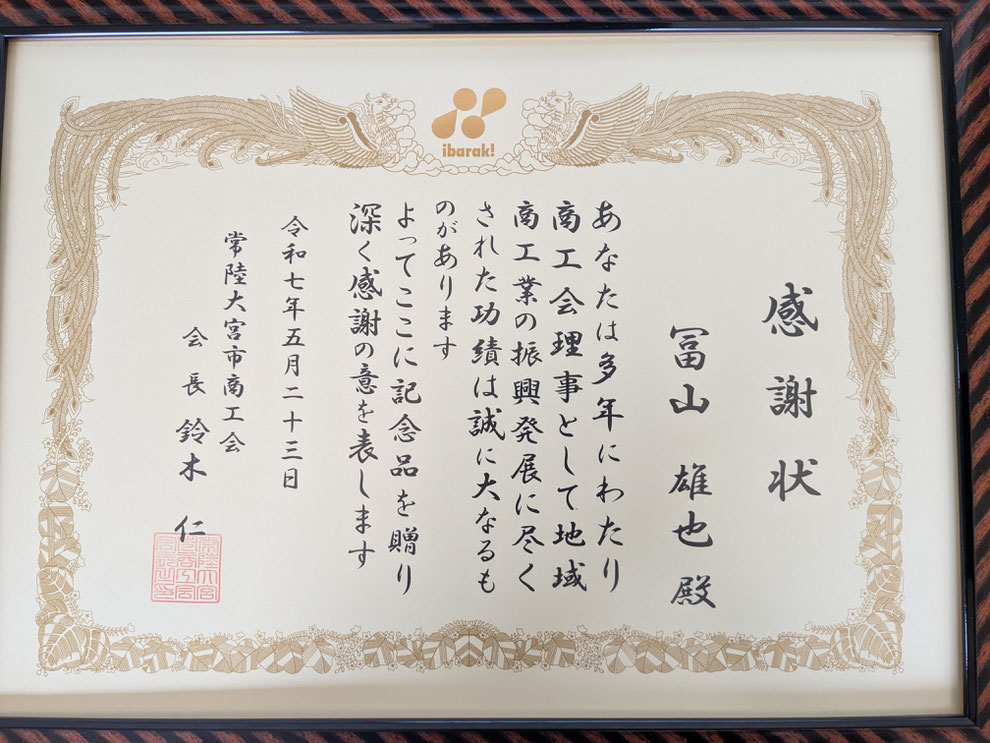 ibarak!
感謝状
冨山 雄也 殿
あなたは多年にわたり
商工会理事として地域
商工業の振興発展に尽く
された功績は誠に大なるも
のがあります
よってここに記念品を贈り
深く感謝の意を表します
令和七年五月二十三日
常陸大宮市商工会
会長 鈴木 仁